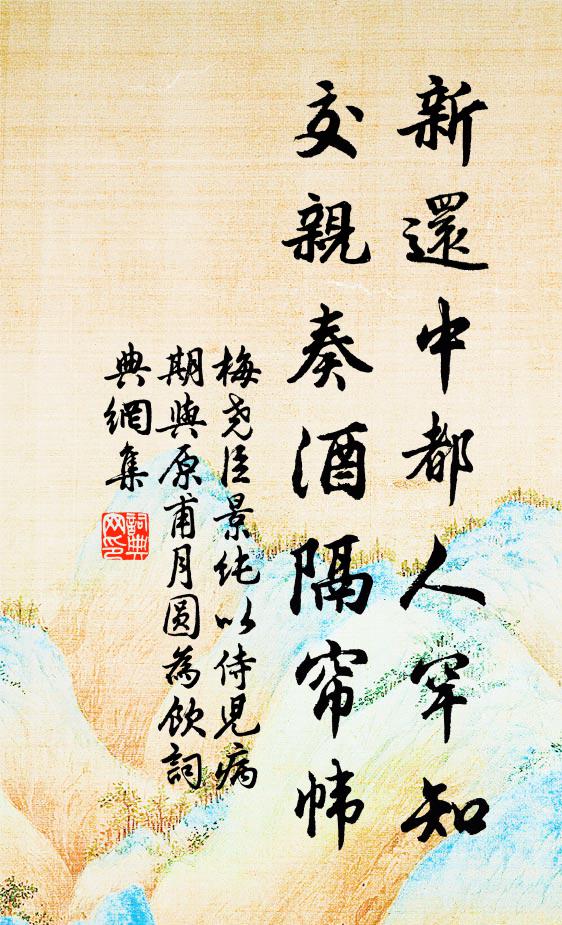 新還中都人罕知
交親奏酒隔帘幃
梅尧臣景纯以侍児病
期與原甫月圆為飲詞
典網集
詞典
网印